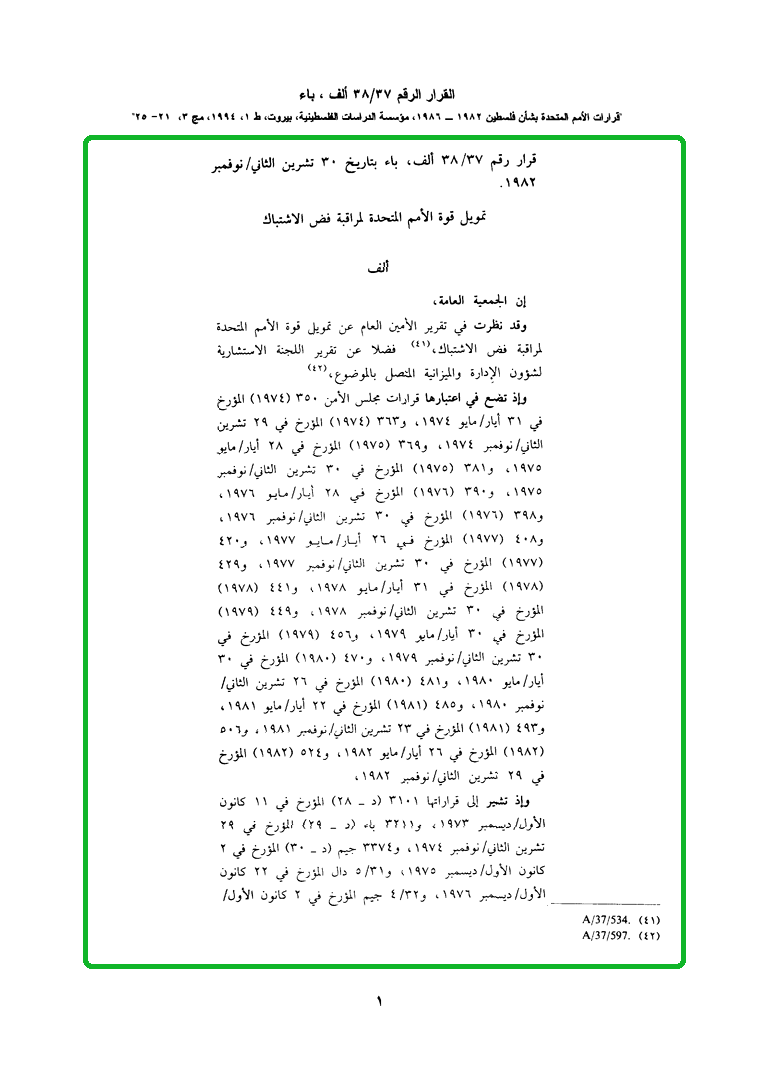 القرار الرقم ٣٨/٣٧ ألف ، باء
"قرارات الأمم المتحدة بشأن فلسطين ١٩٨٢ ــ ١٩٨٦، مؤسسة الدراسات الفلسطينية، بيروت، ط ١، ١٩٩٤، مج ٣، ٢١- ٢٥"
قرار رقم ٣٨/٣٧ ألف، باء بتاريخ ٣٠ تشرين الثاني/نوفمبر
١٩٨٢.
تمويل قوة الأمم المتحدة لمراقبة فض الاشتباك
ألف
إن الجمعية العامة،
وقد نظرت في تقرير الأمين العام عن تمويل قوة الأمم المتحدة
لمراقبة فض الاشتباك،(٤١) فضلا عن تقرير اللجنة الاستشارية
لشؤون الإدارة والميزانية المتصل بالموضوع،(٤٢)
وإذ تضع في اعتبارها قرارات مجلس الأمن ٣٥٠ (١٩٧٤) المؤرخ
في ٣١ أيار/مايو ١٩٧٤، و٣٦٣ (١٩٧٤) المؤرخ في ٢٩ تشرين
الثاني/نوفمبر ١٩٧٤، و٣٦٩ (١٩٧٥) المؤرخ في ٢٨ أيار/مايو
١٩٧٥، و٣٨١ (١٩٧٥) المؤرخ في ٣٠ تشرين الثاني/نوفمبر
١٩٧٥، و٣٩٠ (١٩٧٦) المؤرخ في ٢٨ أيار/مايو ١٩٧٦،
و٣٩٨ (١٩٧٦) المؤرخ في ٣٠ تشرين الثاني/نوفمبر ١٩٧٦،
و٤٠٨ (١٩٧٧) المؤرخ في ٢٦ أيار/مايو ١٩٧٧، و٤٢٠
(١٩٧٧) المؤرخ في ٣٠ تشرين الثاني/نوفمبر ١٩٧٧، و٤٢٩
(١٩٧٨) المؤرخ في ٣١ أيار/مايو ١٩٧٨، و٤٤١ (١٩٧٨)
المؤرخ في ٣٠ تشرين الثاني/نوفمبر ١٩٧٨، و٤٤٩ (١٩٧٩)
المؤرخ في ٣٠ أيار/مايو ١٩٧٩، و٤٥٦ (١٩٧٩) المؤرخ في
٣٠ تشرين الثاني/نوفمبر ١٩٧٩، و٤٧٠ (١٩٨٠) المؤرخ في ٣٠
أيار/مايو ١٩٨٠، و٤٨١ (١٩٨٠) المؤرخ في ٢٦ تشرين الثاني/
نوفمبر ١٩٨٠، و٤٨٥ (١٩٨١) المؤرخ في ٢٢ أيار/مايو ١٩٨١،
و٤٩٣ (١٩٨١) المؤرخ في ٢٣ تشرين الثاني/نوفمبر ١٩٨١، و٥٠٦
(١٩٨٢) المؤرخ في ٢٦ أيار/مايو ١٩٨٢، و٥٢٤ (١٩٨٢) المؤرخ
في ٢٩ تشرين الثاني/نوفمبر ١٩٨٢،
وإذ تشير إلى قراراتها ٣١٠١ (د ــ ٢٨) المؤرخ في ١١ كانون
الأول/ديسمبر ١٩٧٣، و٣٢١١ باء (د ــ ٢٩) المؤرخ في ٢٩
تشرين الثاني/نوفمبر ١٩٧٤، و٣٣٧٤ جيم (د ــ ٣٠) المؤرخ في ٢
كانون الأول/ديسمبر ١٩٧٥، و٥/٣١ دال المؤرخ في ٢٢ كانون
الأول/ديسمبر ١٩٧٦، و٤/٣٢ جيم المؤرخ في ٢ كانون الأول/
(٤١) A/37/534.
(٤٢) A/37/597.
١